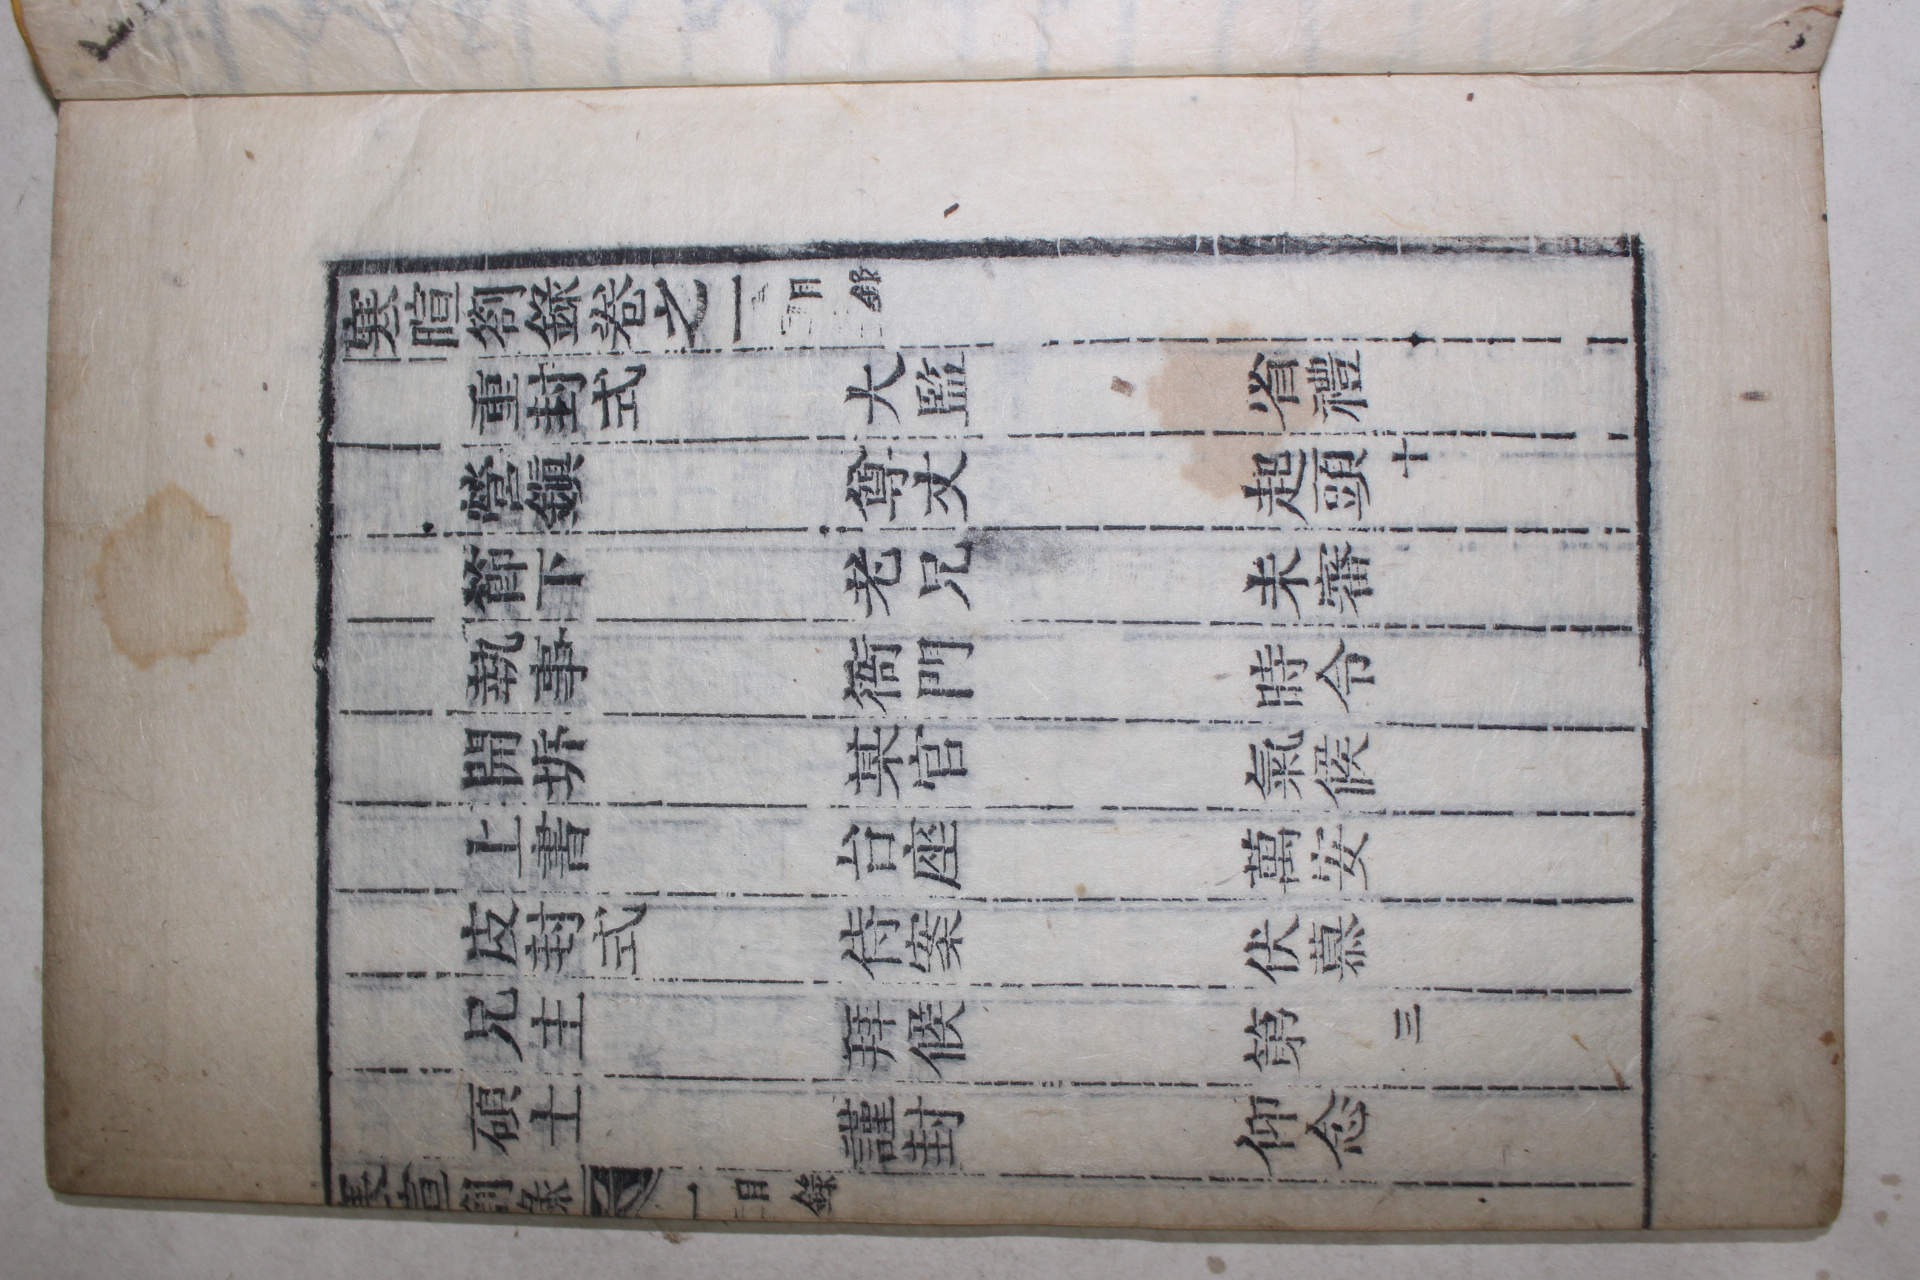 寒暄箚錄卷之一 目錄
重封式 大監 省禮
營鎭 尊丈 起頭十
節下 老兄 未審
執事 衙門 時令
開坼 某官 氣候
上書 台座 萬安
皮封式 侍案 伏慕
兄主 拜候 第三
碩士 謹封 仰念
寒暄箚錄 一 目錄